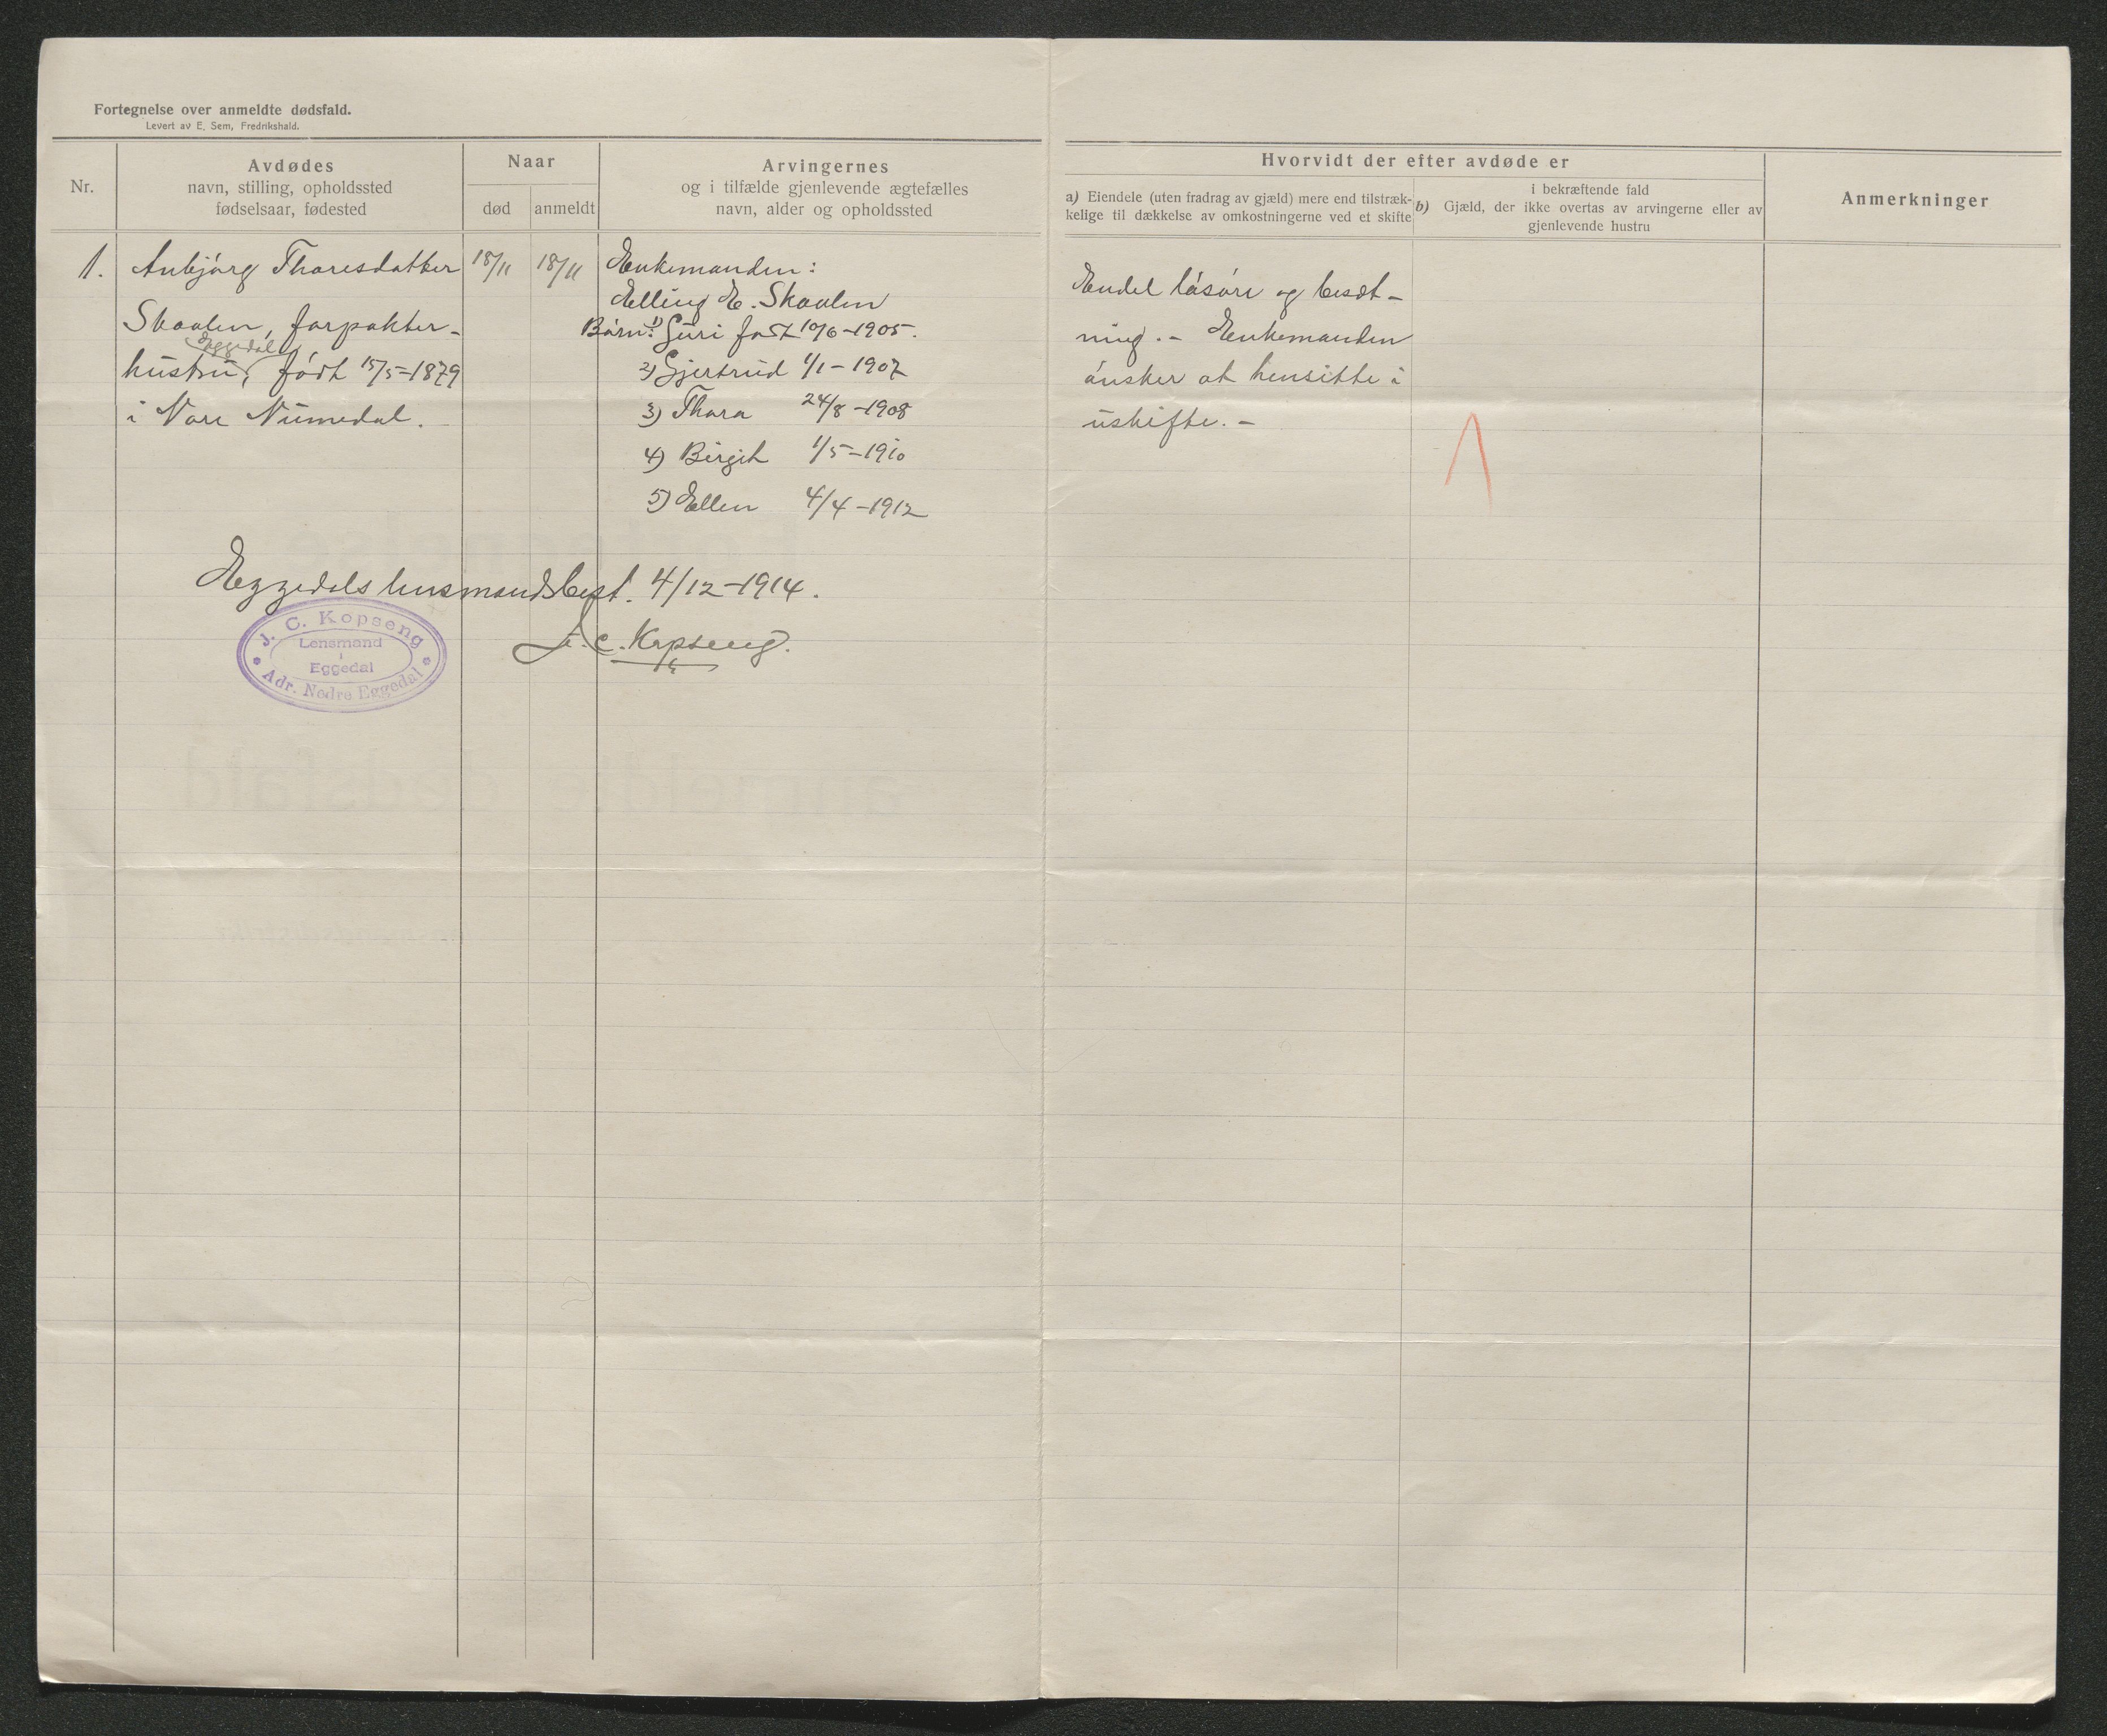 Fortegnelse over anmeldte dødsfald.
Levert av E. Sem, Fredrikshald.
Nr.
Avdødes
navn, stilling, opholdssted
fødselsaar, fødested
Naar
død
anmeldt
Arvingernes
og i tilfælde gjenlevende ægtefælles
navn, alder og opholdssted
Hvorvidt der efter avdøde er
a) Eiendele (uten fradrag av gjæld) mere end tilstræk-
kelige til dækkelse av omkostningerne ved et skifte
i bekræftende fald
b) Gjæld, der ikke overtas av arvingerne eller av
gjenlevende hustru
Anmerkninger
1.
Anbjørg Thoresdatter
Skaalen, forpakter-
Eggedal
hustru, født 15/5-1879
i Nore Numedal.
18/11
18/11
Enkemanden:
Elling E. Skaalen
Børn: 1) Guri født 10/6-1905.
2) Gjertrud 1/1-1907
3) Thora 24/8-1908
4) Birgit 1/5-1910
5) Ellen 4/4-1912
Endel løsøre og besæt-
ning. - Enkemanden
ønsker at hensitte i
uskifte. -
Eggedals lensmandsbest. 4/12-1914.
J. C. Kopseng.
J. C. Kopseng
Lensmand
i
Eggedal
Adr. Nedre Eggedal